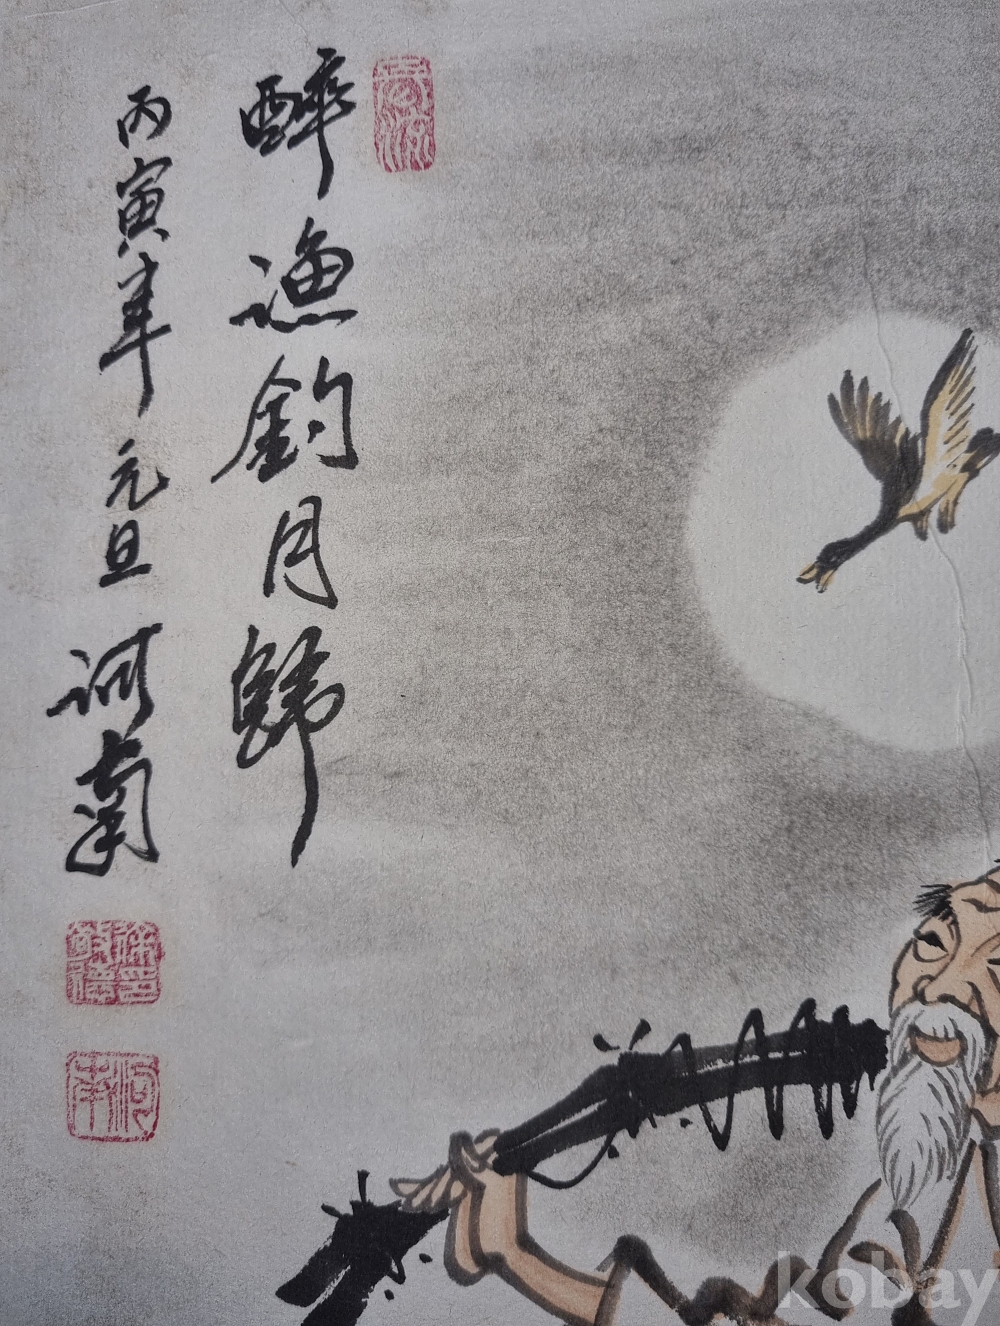 醉漁釣月歸
丙寅年元旦 河南
kobay